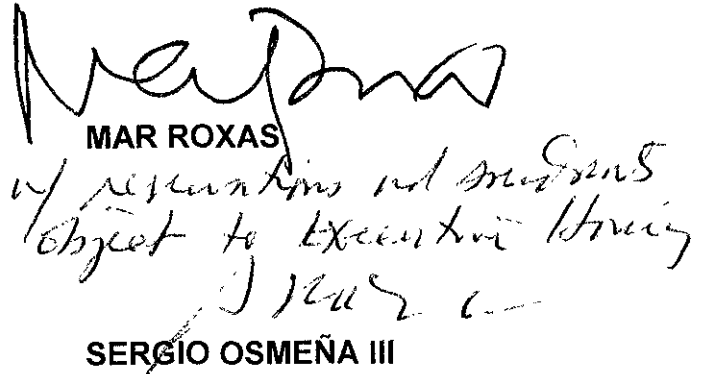 MAR ROXAS
w/ reservations and amendments
object to Executive
SERGIO OSMEÑA III